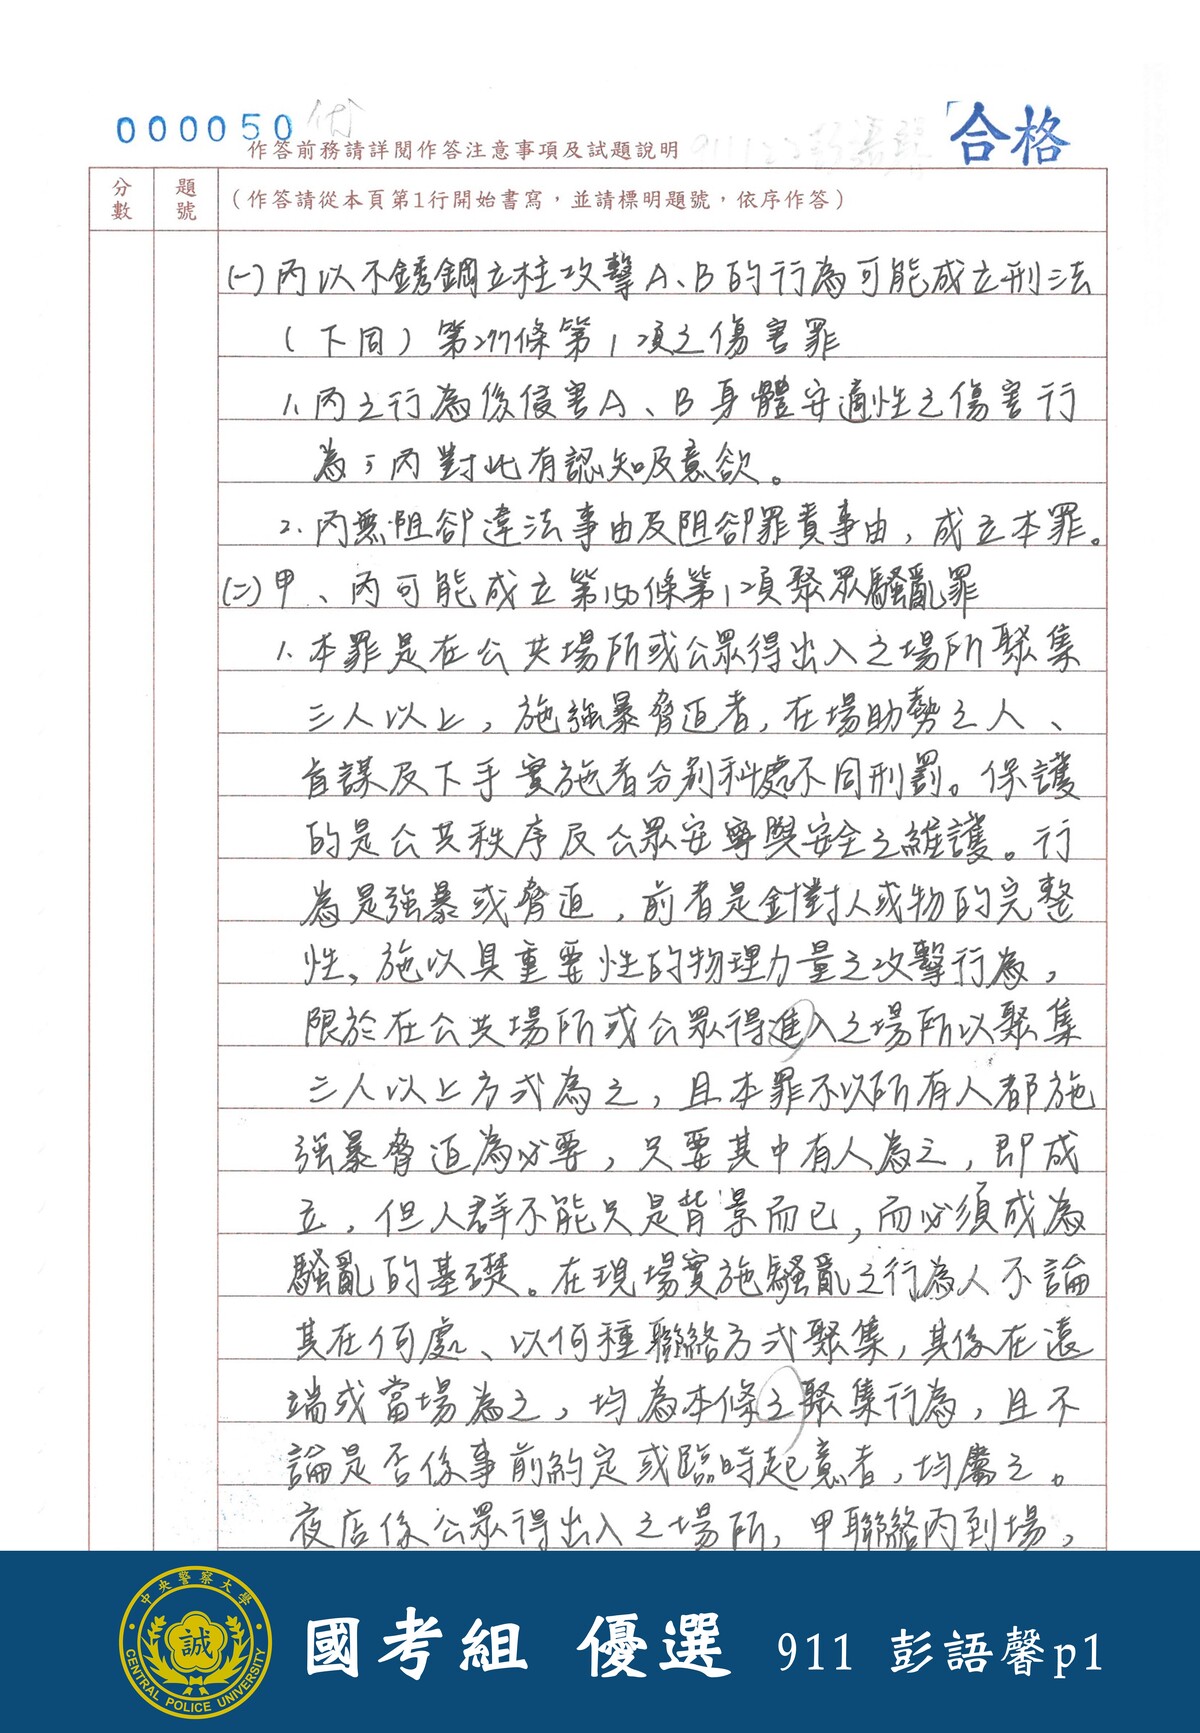 000050
優
「合格
作答前務請詳閱作答注意事項及試題說明
分數
題號
(作答請從本頁第1行開始書寫，並請標明題號，依序作答)
(一)丙以不銹鋼立柱攻擊A、B的行為可能成立刑法
(下同)第277條第1項之傷害罪
1.丙之行為係侵害A、B身體安適性之傷害行
為，丙對此有認知及意欲。
2.丙無阻卻違法事由及阻卻罪責事由，成立本罪。
(二)甲、丙可能成立第150條第1項聚眾騷亂罪
1.本罪是在公共場所或公眾得出入之場所聚集
三人以上，施強暴脅迫者，在場助勢之人、
首謀及下手實施者分別科處不同刑罰。保護
的是公共秩序及公眾安寧與安全之維護。行
為是強暴或脅迫，前者是針對人或物的完整
性，施以具重要性的物理力量之攻擊行為，
限於在公共場所或公眾得進入之場所以聚集
三人以上方式為之，且本罪不以所有人都施
強暴脅迫為必要，只要其中有人為之，即成
立，但人群不能只是背景而已，而必須成為
騷亂的基礎。在現場實施騷亂之行為人不論
其在何處、以何種聯絡方式聚集，其係在遠
端或當場為之，均為本條之聚集行為，且不
論是否係事前約定或臨時起意者，均屬之。
夜店係公眾得出入之場所，甲聯絡丙到場，
中央警察大學
誠
CENTRAL POLICE UNIVERSITY
國考組 優選 911 彭語馨p1